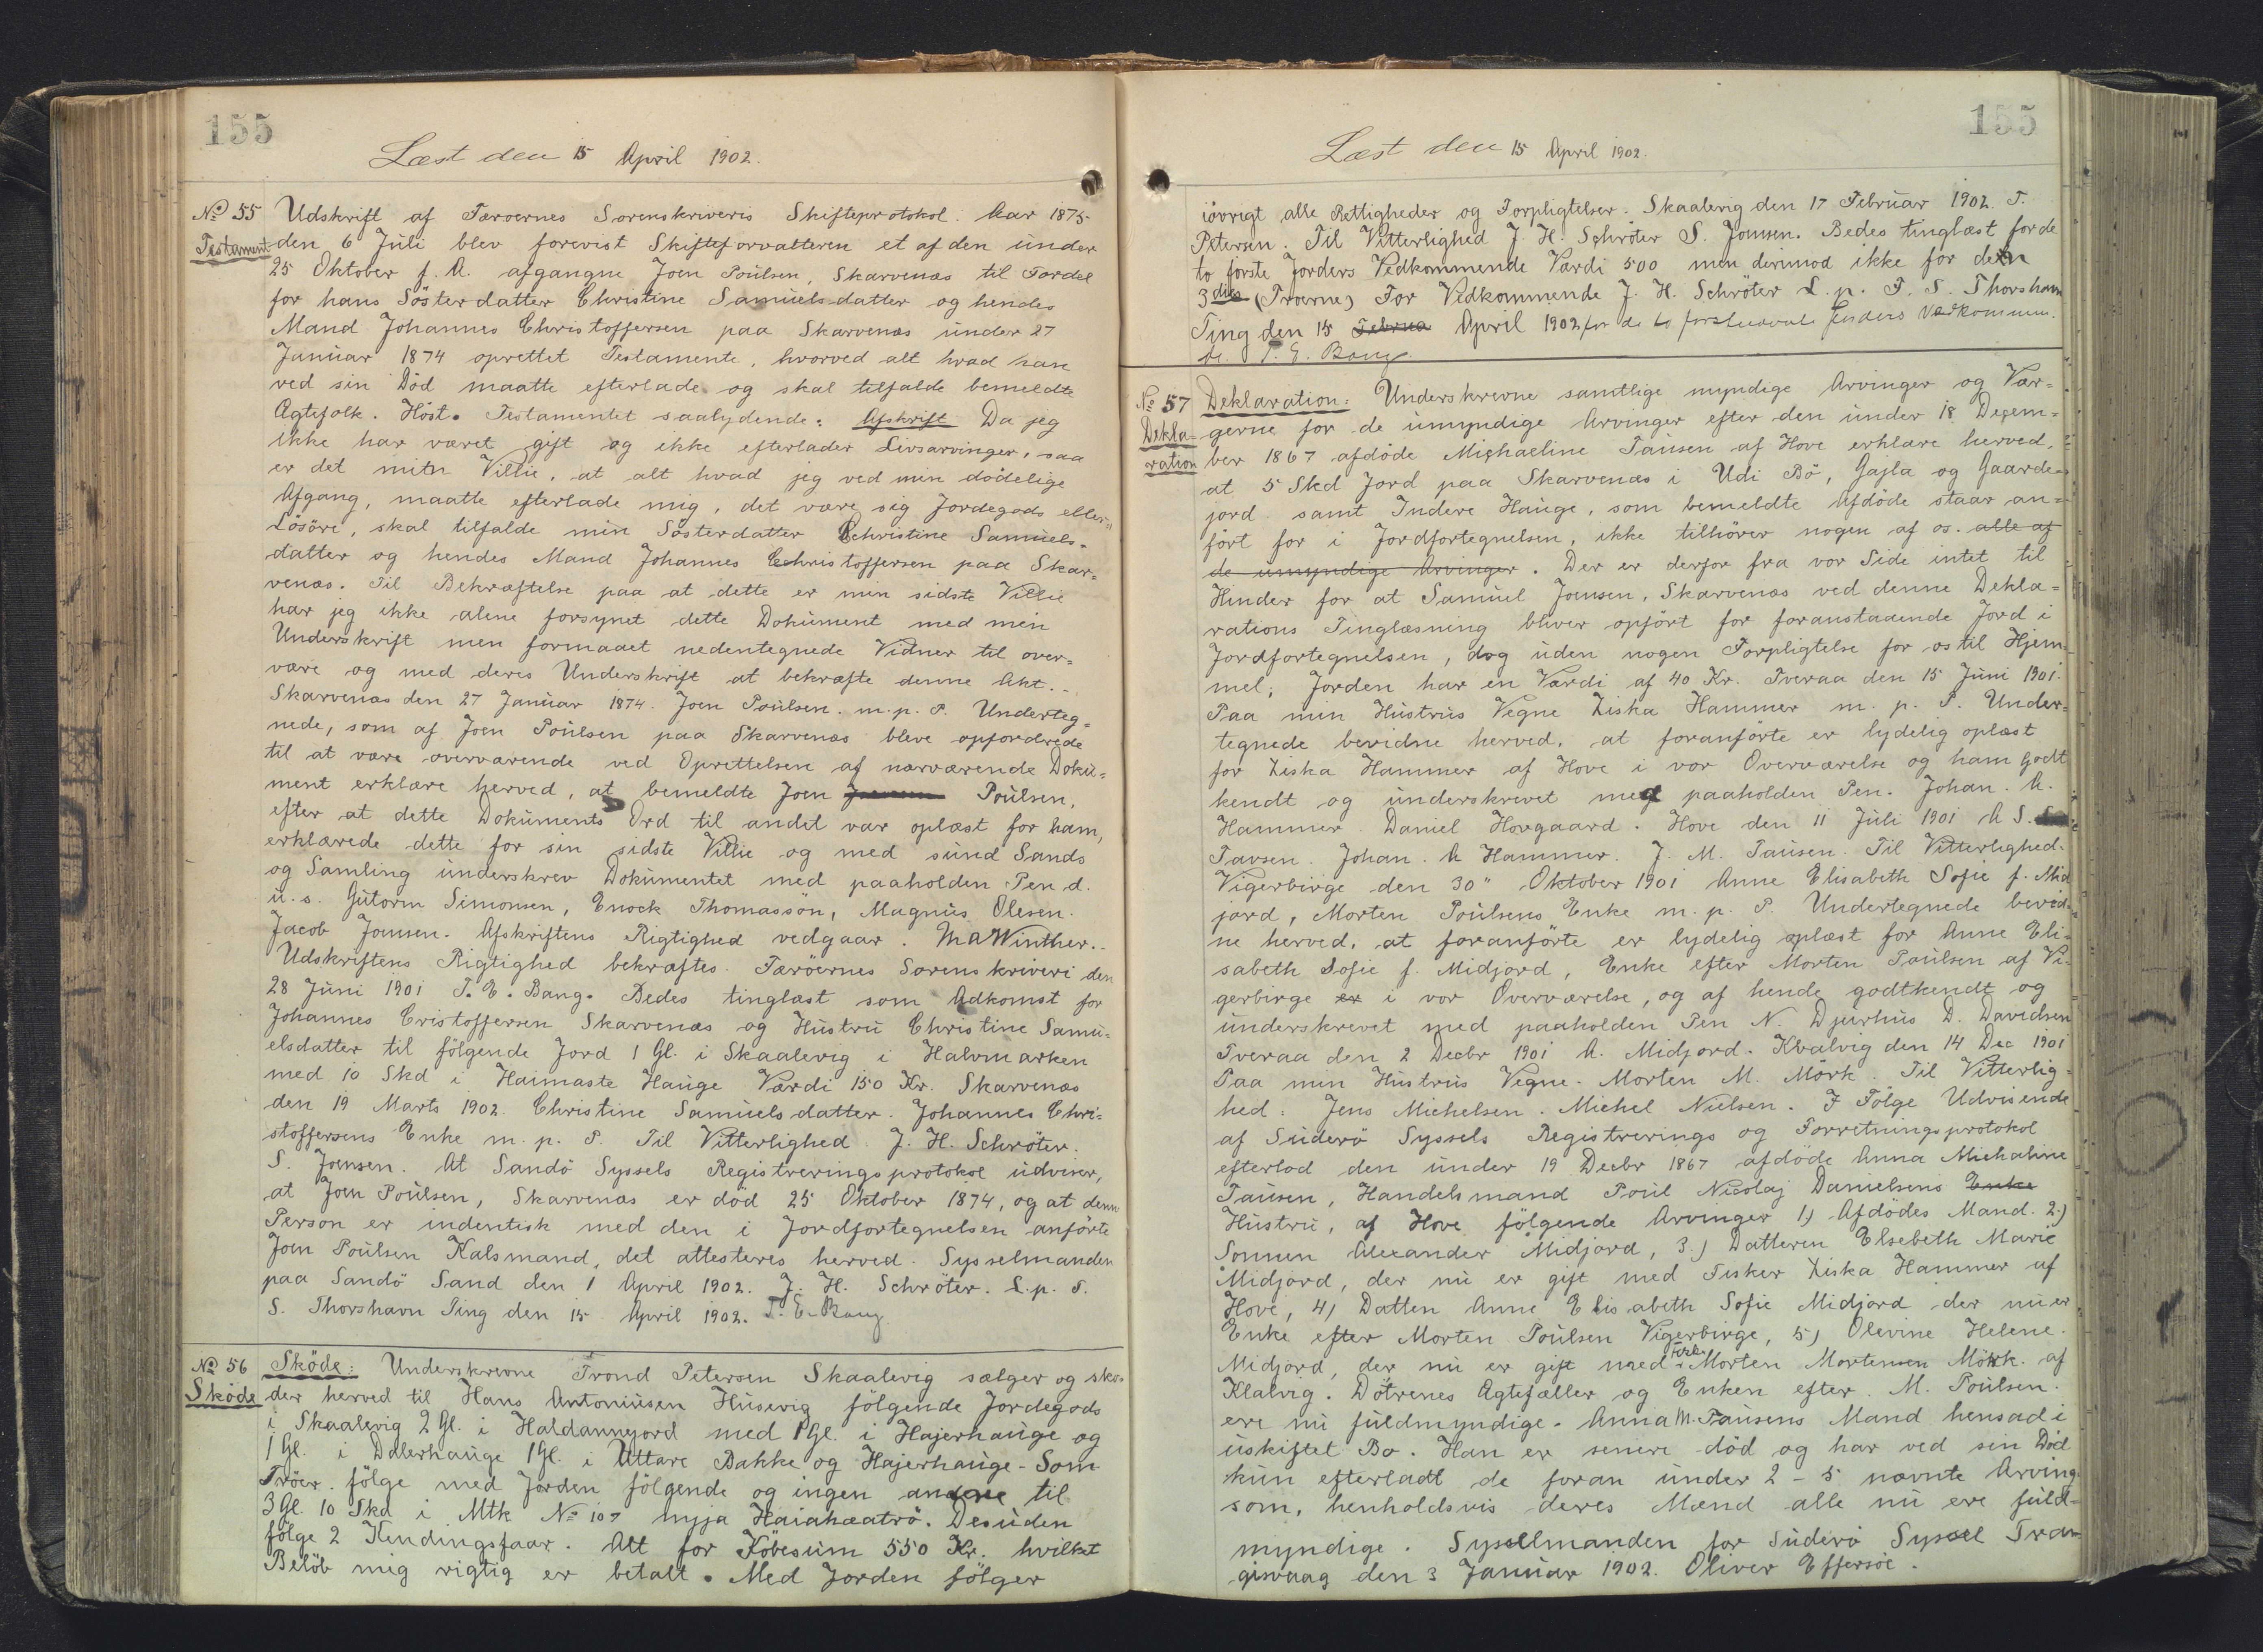 155
Læst den 15 April 1902.
No 55 Udskrift af Færoernes Sorenskriveris Skifteprotokol. Aar 1875
Testament den 6 Juli blev forevist Skifteforvalteren et af den under
25 Oktober f. A. afgangne Joen Poulsen, Skarvenæs til Fordel
for hans Söster datter Christine Samuels datter og hendes
Mand Johannes Christoffersen paa Skarvenæs under 27
Januar 1874 oprettet Testamente, hvorved alt hvad han
ved sin Död maatte efterlade og skal tilfalde bemeldte
Ægtefolk. Höst. Testamentet saalydende: Afskrift Da jeg
ikke har været gift og ikke efterlader Livsarvinger, saa
er det mitn Villie, at alt hvad jeg ved min dödelige
Afgang, maatte efterlade mig, det være sig Jordegods eller
Lösöre, skal tilfalde min Sösterdatter Christine Samuels-
datter og hendes Mand Johannes Christoffersen paa Skar=
venæs. Til Bekræftelse paa at dette er min sidste Villie
har jeg ikke alene forsynet dette Dokument med min
Underskrift men formaaet nedentegnede Vidner til over=
være og med deres Underskrift at bekræfte denne Akt.
Skarvenæs den 27 Januar 1874. Joen Poulsen. m. p. P. Underteg=
nede, som af Joen Poulsen paa Skarvenæs bleve opfordrede
til at være overværende ved Oprettelsen af nærværende Doku=
ment erklære herved, at bemeldte Joen Poulsen,
efter at dette Dokuments Ord til andet var oplæst for ham,
erklærede dette for sin sidste Villie og med sund Sands
og Samling underskrev Dokumentet med paaholden Pen d.
u. s. Gutorm Simonsen, Enock Thomassön, Magnus Olesen.
Jacob Joensen. Afskriftens Rigtighed vedgaar. M A Winther.
Udskriftens Rigtighed bekræftes. Færöernes Sorenskriveri den
28 Juni 1901 P. E. Bang. Bedes tinglæst som Adkomst for
Johannes Cristoffersen Skarvenæs og Hustru Christine Samu=
elsdatter til fölgende Jord 1 Gl. i Skaalevig i Halvmarken
med 10 Skd i Haimaste Hauge Værdi 150 Kr. Skarvenæs
den 19 Marts 1902. Christine Samuels datter. Johannes Chri=
stoffersens Enke m. p. P. Til Vitterlighed J. H. Schröter.
S. Joensen. At Sandö Syssels Registreringsprotokol udviser,
at Joen Poulsen, Skarvenæs er död 25 Oktober 1874, og at denne
Person er indentisk med den i Jordfortegnelsen anförte
Joen Poulsen Kalsmand, det attesteres herved. Sysselmanden
paa Sandö Sand den 1 April 1902. J. H. Schröter. L. p. F.
S. Thorshavn Ting den 15 April 1902. P. E. Bang
No 56 Sköde: Underskrevne Trond Petersen Skaalevig sælger og skö-
Sköde der herved til Hans Antoniusen Husevig fölgende Jordegods
i Skaalevig 2 Gl. i Haldannyord med 1 Gl. i Hajerhauge og
1 Gl. i Dalerhauge 1 Gl. i Uttare Bakke og Hajerhauge - Som
Tröer fölge med Jorden fölgende og ingen andre til
3 Gl. 10 Skd i Mtk No 107 Innja Haiahæatrö. Desuden
fölge 2 Kendingsfaar. Alt for Köbesum 550 Kr. hvilket
Belöb mig rigtig er betalt. Med Jorden fölger
155
Læst den 15 April 1902.
iövrigt alle Rettigheder og Forpligtelser. Skaalevig den 17 Februar 1902. T.
Petersen. Til Vitterlighed J. H. Schröter S. Joensen. Bedes tinglæst for de
to förste Jorders Vedkommende Værdi 500 men derimod ikke for den
3die (Tröerne) For Vedkommende J. H. Schröter L. p. F. S. Thorshavn
Ting den 15 Februa April 1902 for de to förstnævnte Jorders Vedkommen
de. P. E. Bang
No 57 Deklaration: Underskrevne samtlige myndige Arvinger og Vær=
Dekla- gerne for de umyndige Arvinger efter den under 18 Decem=
ration ber 1867 afdöde Michaeline Tausen af Hove erklære herved,
at 5 Skd Jord paa Skarvenæs i Udi Bö, Gajla og Gaarde-
jord samt Indere Hauge, som bemeldte Afdöde staar an=
fört for i Jordfortegnelsen, ikke tilhörer nogen af os. alle af
de umyndige Arvinger. Der er derfor fra vor Side intet til
Hinder for at Samuel Joensen, Skarvenæs ved denne Dekla=
rations Tinglæsning bliver opfört for foranstaaende Jord i
Jordfortegnelsen, dog uden nogen Forpligtelse for os til Hjem=
mel; Jorden har en Værdi af 40 Kr. Tveraa den 15 Juni 1901.
Paa min Hustrus Vegne Ziska Hammer m. p. P. Under=
tegnede bevidne herved, at foranförte er lydelig oplæst
for Ziska Hammer af Hove i vor Overværelse og ham godt
kendt og underskrevet med paaholden Pen. Johan. A.
Hammer. Daniel Hovgaard. Hove den 11 Juli 1901 A S.
Tavsen. Johan. A Hammer. J. M. Tausen. Til Vitterlighed.
Vigerbirge den 30" Oktober 1901 Anne Elisabeth Sofie f. Mid
jord, Morten Poulsens Enke m. p. P. Undertegnede bevid=
ne herved, at foranförte er lydelig oplæst for Anne Eli=
sabeth Sofie f. Midjord, Enke efter Morten Poulsen af Vi=
gerbirge er i vor Overværelse, og af hende godtkendt og
underskrevet med paaholden Pen N. Djurhus D. Davidsen
Tveraa den 2 Decbr 1901 A. Midjord. Kvalvig den 14 Dec 1901
Paa min Hustrus Vegne. Morten M. Mörk. Til Vitterlig=
hed: Jens Michelsen. Michel Nielsen. I Fölge Udvisende
af Suderö Syssels Registrerings og Forretningsprotokol
efterlod den under 19 Decbr 1867 afdöde Anna Michaline
Tausen, Handelsmand Poul Nicolaj Danielsens Enke
Hustru, af Hove fölgende Arvinger 1) Afdödes Mand. 2)
Sonnen Alexander Midjord, 3.) Datteren Elsebeth Marie
Midjord, der nu er gift med Fisker Ziska Hammer af
Hove, 4) Datten Anne Elisabeth Sofie Midjord der nu er
Enke efter Morten Poulsen Vigerbirge, 5) Olevine Helene
Midjord, der nu er gift med Morten Mortensen Mörk. af
Klalvig. Dötrenes Ægtefæller og Enken efter M. Poulsen.
ere nu fuldmyndige. Anna M. Tausens Mand hensad i
uskiftet Bo. Han er senere död og har ved sin Död
kun efterladt de foran under 2 - 5 nævnte Arving
som, henholdsvis deres Mænd alle nu ere fuld=
myndige. Sysselmanden for Suderö Syssel Tran
gisvaag den 3 Januar 1902. Oliver Effersöe.